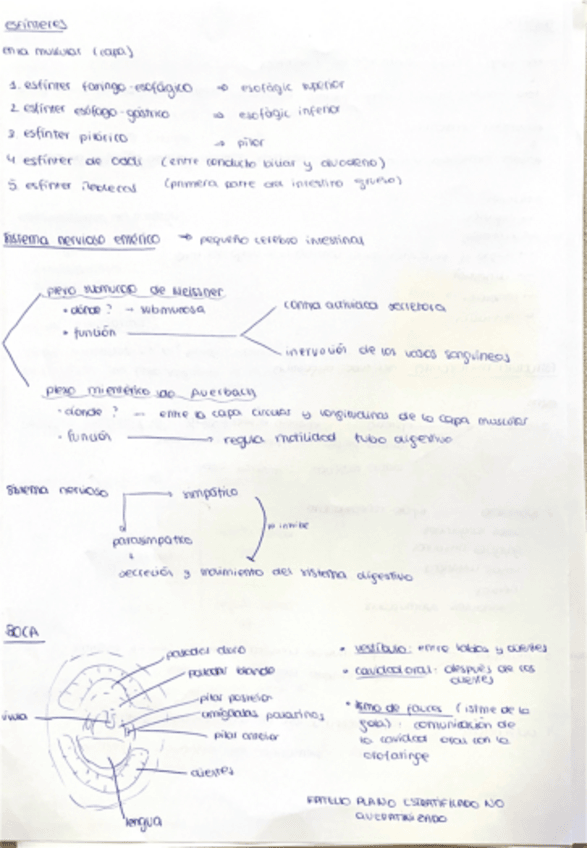 esfínteres
en la muscular (capa)
1. esfínter faringo-esofágico → esofàgic superior
2. esfínter esófago-gástrico → esofàgic inferior
3. esfínter pilórico → pílor
4. esfínter de oddi (entre conducto biliar y duodeno)
5. esfínter ileocecal (primera parte del intestino grueso)
Sistema nervioso entérico → pequeño cerebro intestinal
plexo submucoso de Meissner
• dónde? → submucosa
• función
control actividad secretora
inervación de los vasos sanguíneos
plexo mientérico de Auerbach
• donde? — entre la capa circular y longitudinal de la capa muscular
• función → regula motilidad tubo digestivo
Sistema nervioso → simpático
inhibe
parasimpático
secreción y movimiento del sistema digestivo
BOCA
paladar duro
paladar blando
pilar posterior
úvula
amígdalas palatinas
pilar anterior
dientes
lengua
• vestíbulo: entre labios y dientes
• cavidad oral: después de los
dientes
• Istmo de fauces (istme de la
gola): comunicación de
la cavidad oral con la
orofaringe
EPITELIO PLANO ESTRATIFICADO NO
QUERATINIZADO